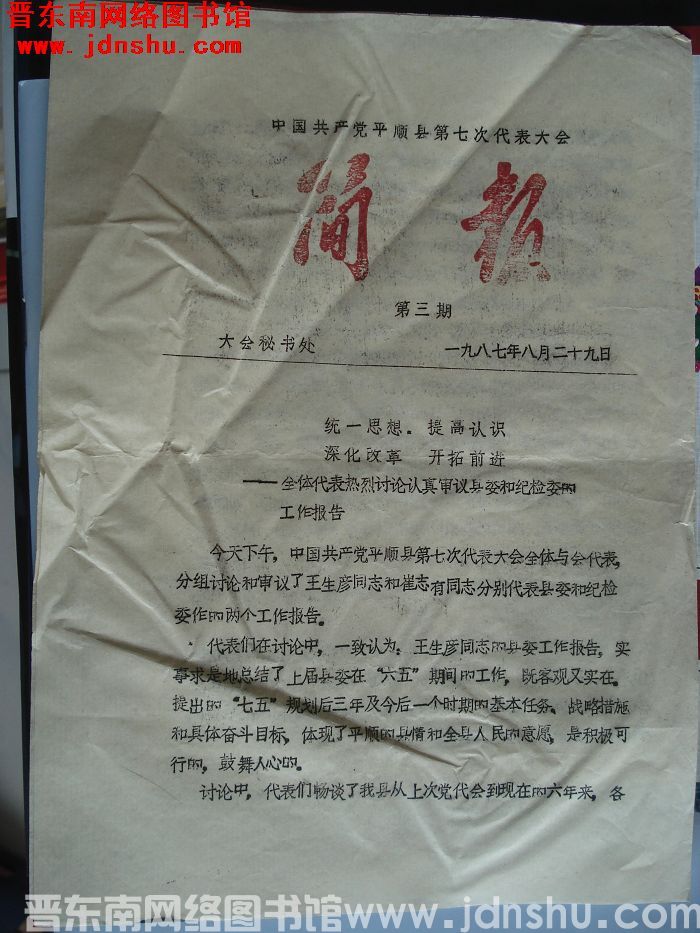 晋东南网络图书馆
www.jdnshu.com
中国共产党平顺县第七次代表大会
简报
第三期
大会秘书处 一九八七年八月二十九日
统一思想. 提高认识
深化改革 开拓前进
——全体代表热烈讨论认真审议县委和纪检委的
工作报告
今天下午,中国共产党平顺县第七次代表大会全体与会代表,
分组讨论和审议了王生彦同志和崔志有同志分别代表县委和纪检
委作的两个工作报告。
代表们在讨论中,一致认为:王生彦同志的县委工作报告,实
事求是地总结了上届县委在“六五”期间的工作,既客观又实在。
提出的“七五”规划后三年及今后一个时期的基本任务、战略措施
和具体奋斗目标,体现了平顺的县情和全县人民的意愿,是积极可
行的,鼓舞人心的。
讨论中,代表们畅谈了我县从上次党代会到现在的六年来,各
晋东南网络图书馆 www.jdnshu.com